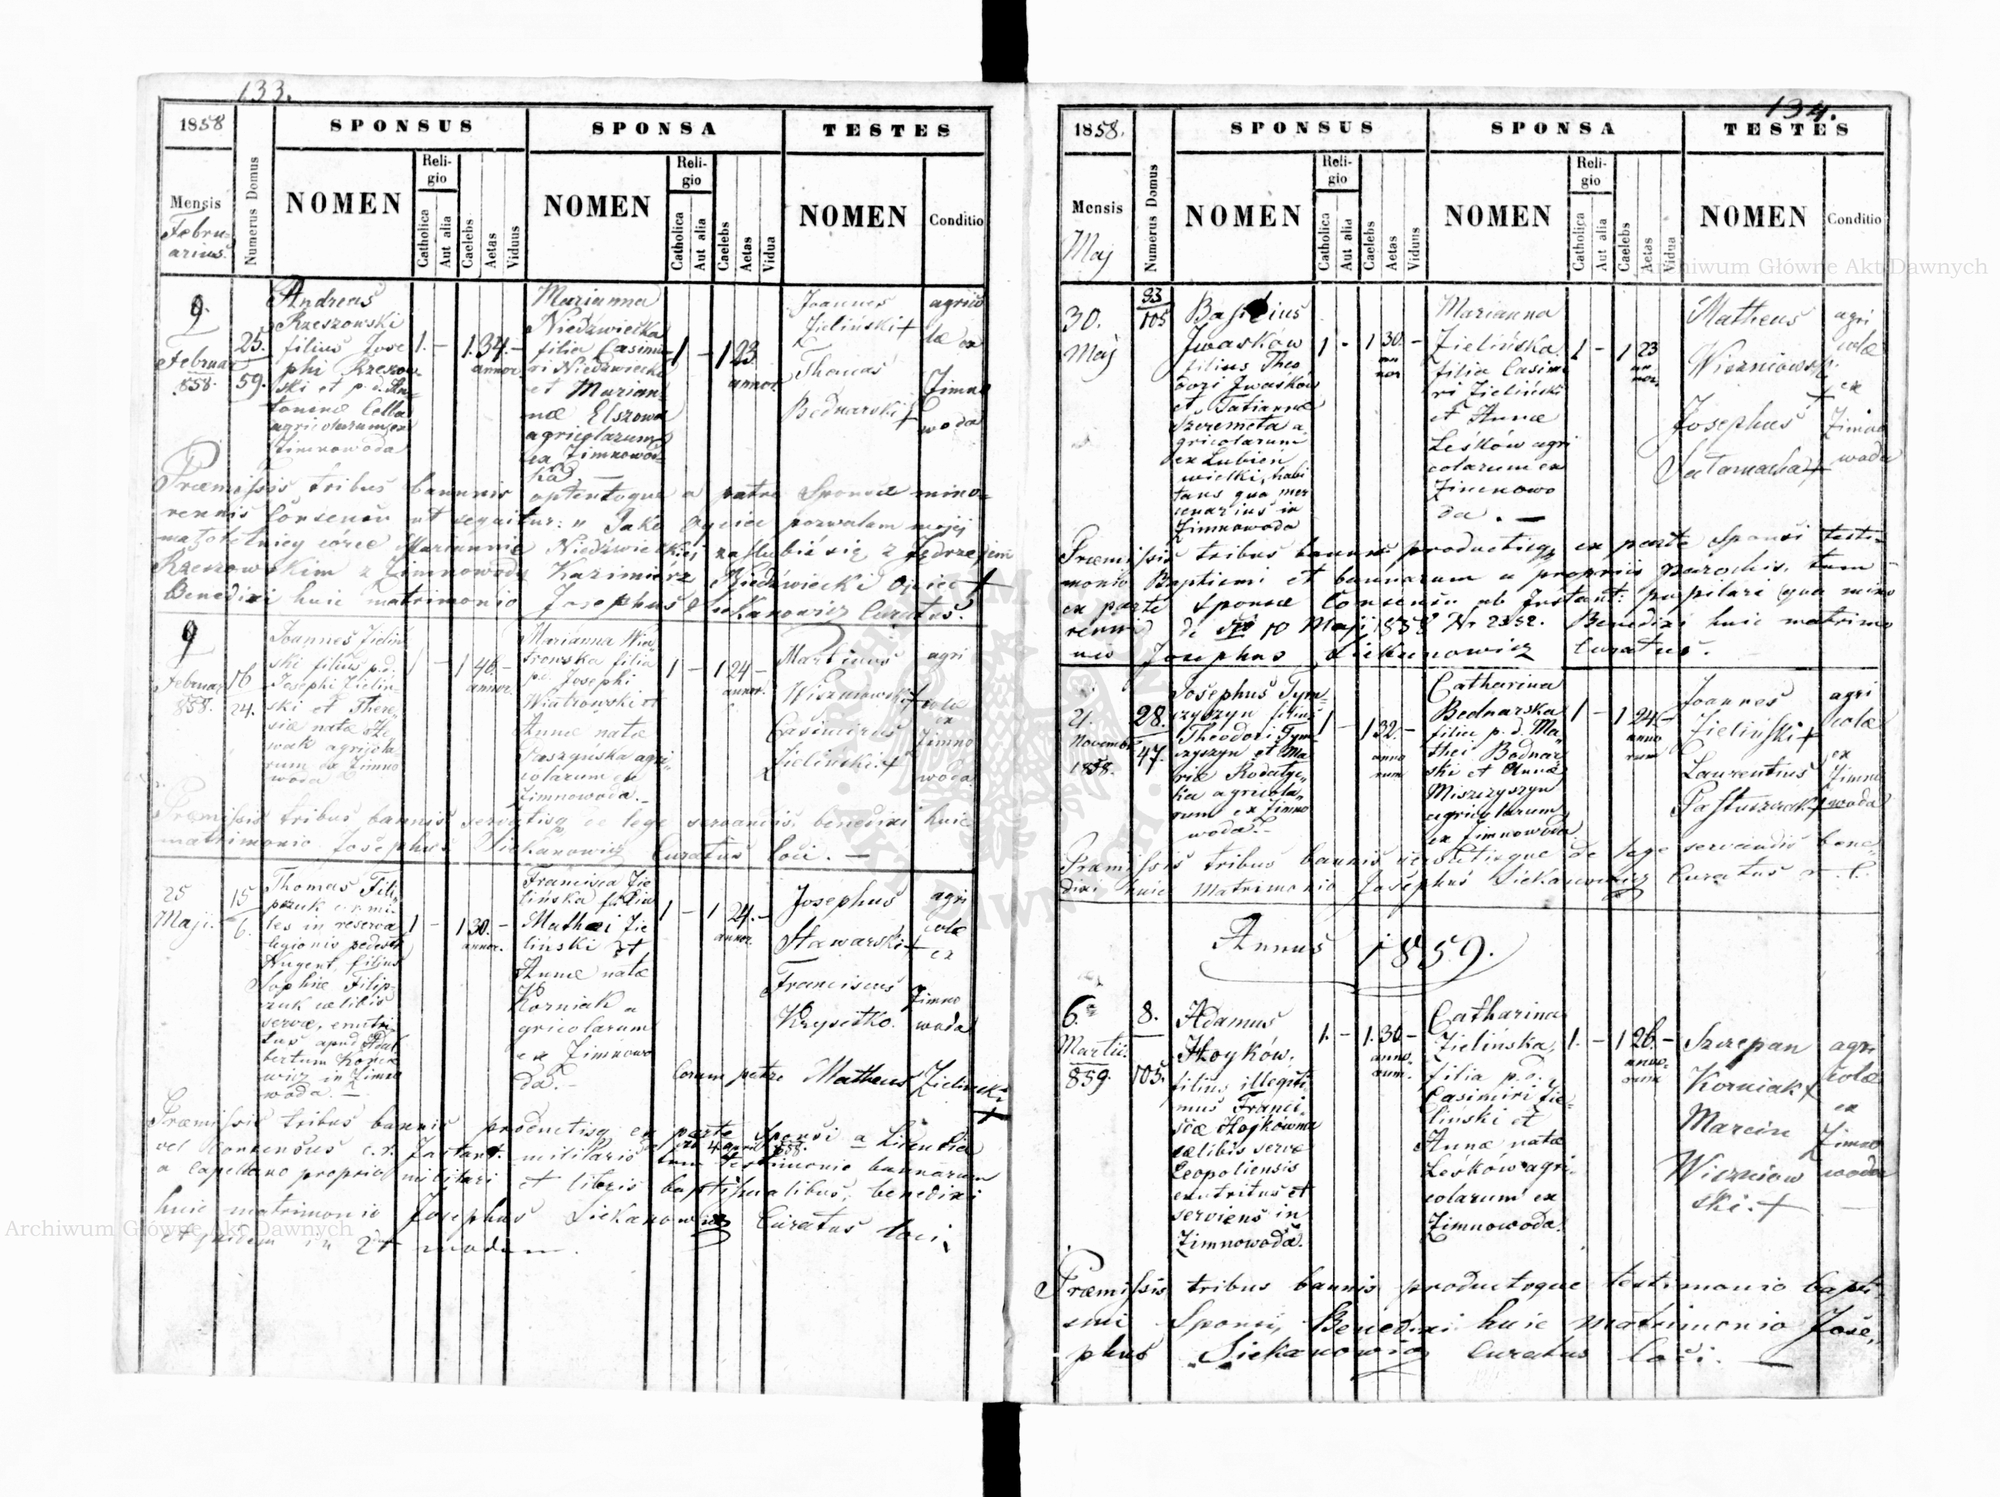 133.
1858
SPONSUS
SPONSA
TESTES
Mensis
Numerus Domus
NOMEN
Religio
Catholica
Aut alia
Caelebs
Aetas
Viduus
NOMEN
Religio
Catholica
Aut alia
Caelebs
Aetas
Vidua
NOMEN
Conditio
Febru-
arius.
9.
Februar
858.
25.
59.
Andreas
Rzeszowski
filius Jose
phi Rzeszow
ski et p. d. An-
toninæ
agricolarum ex
Zimnowoda
1. –
1. 34. –
annor.
Marianna
Niedźwiecka
filia Casimi-
ri Niedźwiecki
et Marian-
næ
agricolarum
ex Zimnowod-
1 –
1 23
annor.
Joannes
Zieliński +
Thomas
Bednarski +
agrico
læ ex
Zimno
woda
Præmissis tribus bannis optentoque a patre Sponsæ mino-
rennis Consensu ut sequitur: „ Jako Ojciec pozwalam mojej
małoletniej córce Mariannie Niedźwieckiej zaślubić się z Jędrzejem
Rzeszowskim z Zimnowody Kazimierz Niedźwiecki Ojciec +
Benedixi huic matrimonio Josephus Siekanowicz Curatus.
9
Februar
858.
16
24.
Joannes Zieliń
ski filius p. d.
Josephi Zieliń-
ski et There-
siæ natæ
agricola
rum ex Zimno
woda
1 –
1 46. –
annor.
Marianna Wia-
trowska filia
p. d. Josephi
Wiatrowski et
Annæ natæ
agri-
colarum ex
Zimnowoda. –
1 –
1 24 –
annor.
Martinus
Wiszniowski +
Casimirus
Zieliński. +
agri
colæ
ex
Zimno
woda
Præmissis tribus bannis servatisq de lege servandis benedixi huic
matrimonio Josephus Siekanowicz Curatus loci. —
25
Maji.
15
6.
Thomas Fili-
pczuk c. r. mi-
les in reserva
legionis pedestr
Nugent, filius
Sophiæ Filip-
czuk cælibis
servæ, enutri-
tus apud Adal
bertum
in Zimno
woda. —
1 –
1 30. –
annor.
Francisca Zie
lińska filia
Mathæi Zie
liński et
Annæ natæ
Korniak a
gricolarum
ex Zimnowo
da. –
1 –
1 24. –
annor.
Josephus
Stawarski +
Franciscus
Krysitko.
agri
colæ
ex
Zimno
woda
Coram patre Matheus Zieliński
+
Præmissis tribus bannis productisq ex parte Sponsi a Licentia
vel Consensus c. r. Instant. militaris 858. tum testimonio bannarum
a Capellano proprio militari et libris baptismalibus, benedixi
huic matrimonio Josephus Siekanowicz Curatus loci.
134.
1858.
SPONSUS
SPONSA
TESTES
Mensis
Numerus Domus
NOMEN
Religio
Catholica
Aut alia
Caelebs
Aetas
Viduus
NOMEN
Religio
Catholica
Aut alia
Caelebs
Aetas
Vidua
NOMEN
Conditio
Maj
30.
Maj
83
105
Basilius
Iwasków
filius Theo
dori Iwasków
et Tatiannæ
Szeremeta a-
gricolarum
ex Lubień
wielki, habi
tans qua mer
cenarius in
Zimnowoda
1 -
1 30. –
an
nor
Marianna
Zielińska
filia Casimi
ri Zieliński
et Annæ
Leśków agri
colarum ex
Zimnowo
da. —
1 –
1 23
an
nor.
Matheus
Wiszniowski
+
Josephus
Sałamacha +
agri
colæ
ex
Zimno
woda
Præmissis tribus bannis productisq ex parte Sponsi testi-
monio Baptismi et bannarum a propriis parochis, tum
ex parte Sponsæ Consensu ab Instant: pupilari qua mino
rennis de dto 10 Maji 1858 Nr 2352. Benedixi huic matrimo
nio Josephus Siekanowicz Curatus.
21.
Novembr
1858.
28.
47.
Josephus Tym-
czyszyn filius
Theodori Tym-
czyszyn et Ma-
riæ
agricola-
rum ex Zimno
woda. –
1 –
1 32. –
anno
rum
Catharina
Bednarska
filia p. d. Ma-
thei Bednar-
ski et Annæ
Miszczyszyn
agricolarum
ex Zimnowoda
1 –
1 24. –
anno
rum
Joannes
Zieliński +
Laurentius
Pastuszczak +
agri
colæ
ex
Zimno
woda
Præmissis tribus bannis servatisque de lege servandis bene-
dixi huic Matrimonio Josephus Siekanowicz Curatus r. l.
Annus 1859.
6.
Martii.
859.
8.
105.
Adamus
Hoyków,
filius illegiti
mus Franci-
scæ Hojkówna
cælibis servæ
Leopoliensis
enutritus et
serviens in
Zimnowoda.
1. –
1. 30. –
anno.
rum.
Catharina
Zielińska,
filia p. d.
Casimiri Zie-
liński et
Annæ natæ
Leśków agri-
colarum ex
Zimnowoda.
1. –
1 26. –
anno.
rum
Szczepan
Korniak +
Marcin
Wiszniow
ski. +
agri
colæ
ex
Zimno
woda
—
Præmissis tribus bannis, productoque testimonio bapti-
smi Sponsi, Benedixi huic matrimonio Jose-
phus Siekanowicz Curatus loci. —
Archiwum Główne Akt Dawnych
Archiwum Główne Akt Dawnych